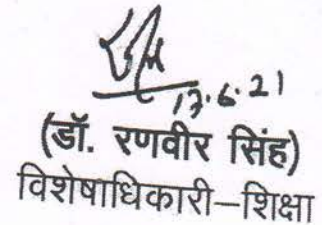 13.6.21
(डॉ. रणवीर सिंह)
विशेषाधिकारी–शिक्षा